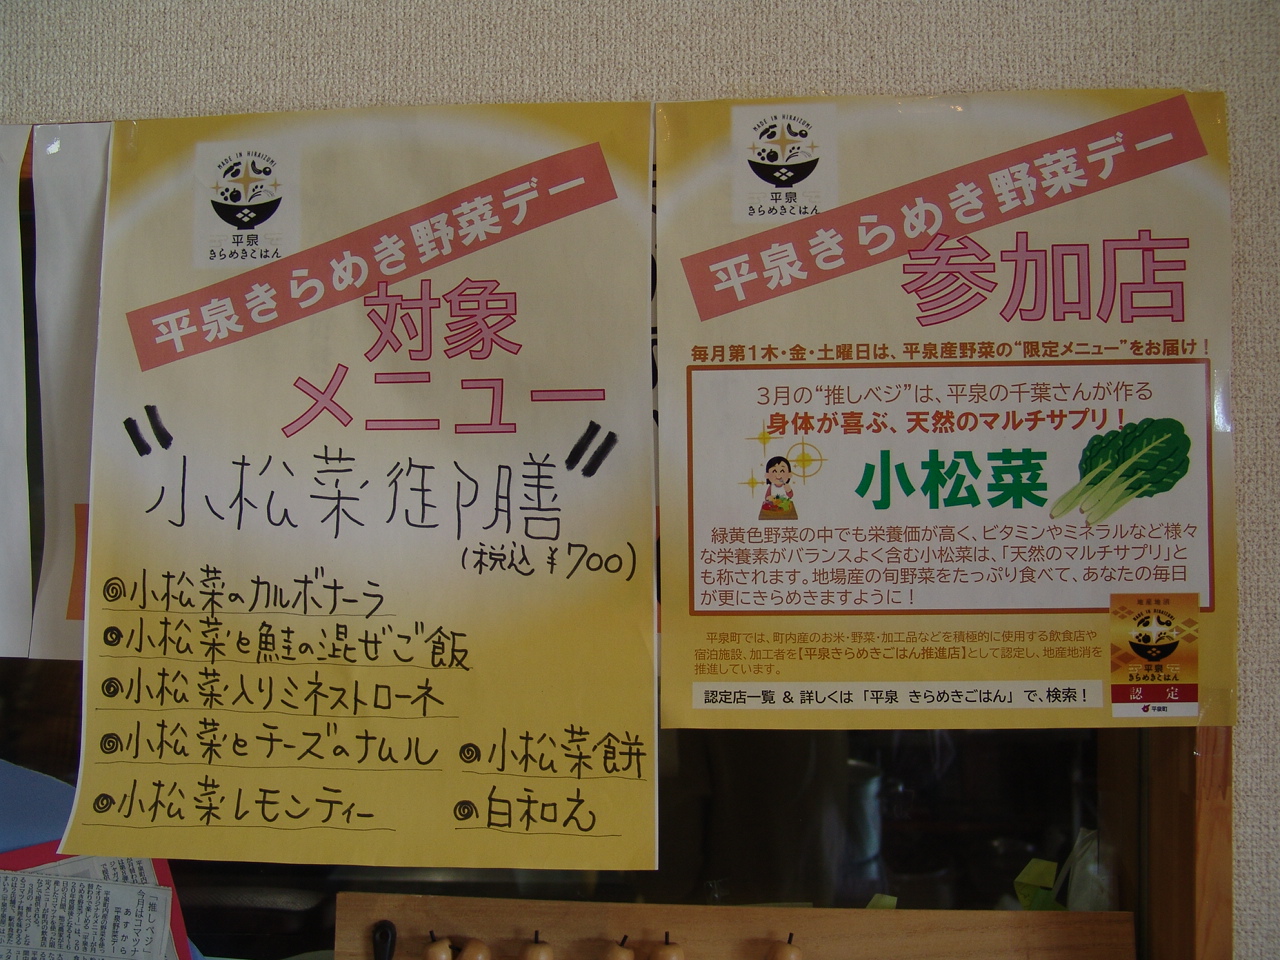 MADE IN HIRAIZUMI
平泉
きらめきごはん
平泉きらめき野菜デー
対象
メニュー
"小松菜御膳"
(税込¥700)
小松菜のカルボナーラ
小松菜と鮭の混ぜご飯
小松菜入りミネストローネ
小松菜とチーズのナムル
小松菜餅
小松菜レモンティー
白和え
MADE IN HIRAIZUMI
平泉
きらめきごはん
平泉きらめき野菜デー
参加店
毎月第1木・金・土曜日は、平泉産野菜の“限定メニュー”をお届け！
3月の“推しベジ”は、平泉の千葉さんが作る
身体が喜ぶ、天然のマルチサプリ！
小松菜
緑黄色野菜の中でも栄養価が高く、ビタミンやミネラルなど様々
な栄養素がバランスよく含む小松菜は、「天然のマルチサプリ」と
も称されます。地場産の旬野菜をたっぷり食べて、あなたの毎日
が更にきらめきますように！
平泉町では、町内産のお米・野菜・加工品などを積極的に使用する飲食店や
宿泊施設、加工者を【平泉きらめきごはん推進店】として認定し、地産地消を
推進しています。
認定店一覧 & 詳しくは「平泉 きらめきごはん」で、検索！
地産地消
平泉
きらめきごはん
認定
平泉町
「推しベジ」
今月はコマツナ
あすから
平泉野菜デー